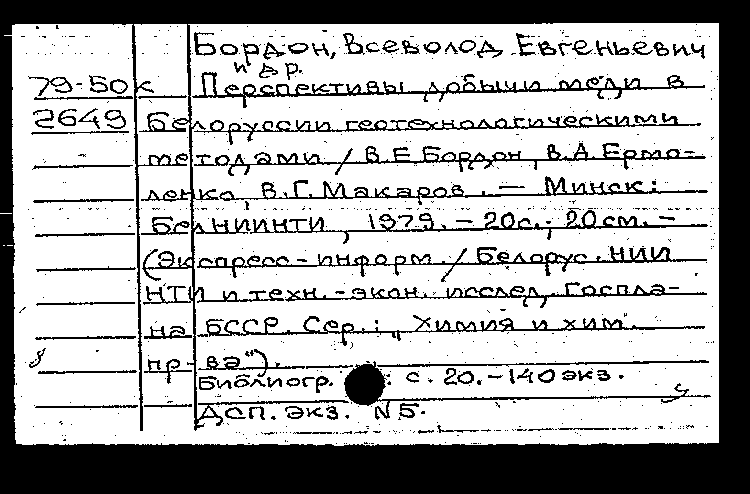 Бордон, Всеволод Евгеньевич
и др.
79-50к Перспективы добычи меди в
2649 Белоруссии геотехнологическими
методами / В.Е.Бордон, В.А.Ермо-
ленко, В.Г.Макаров. — Минск:
БелНИИНТИ, 1979. - 20с.; 20см. -
(Экспресс-информ. / Белорус. НИИ
НТИ и техн.-экон. исслед. Госпла-
на БССР. Сер.: „Химия и хим.
пр-ва").
Библиогр.: с. 20. - 140экз.
ДСП. экз. N5.